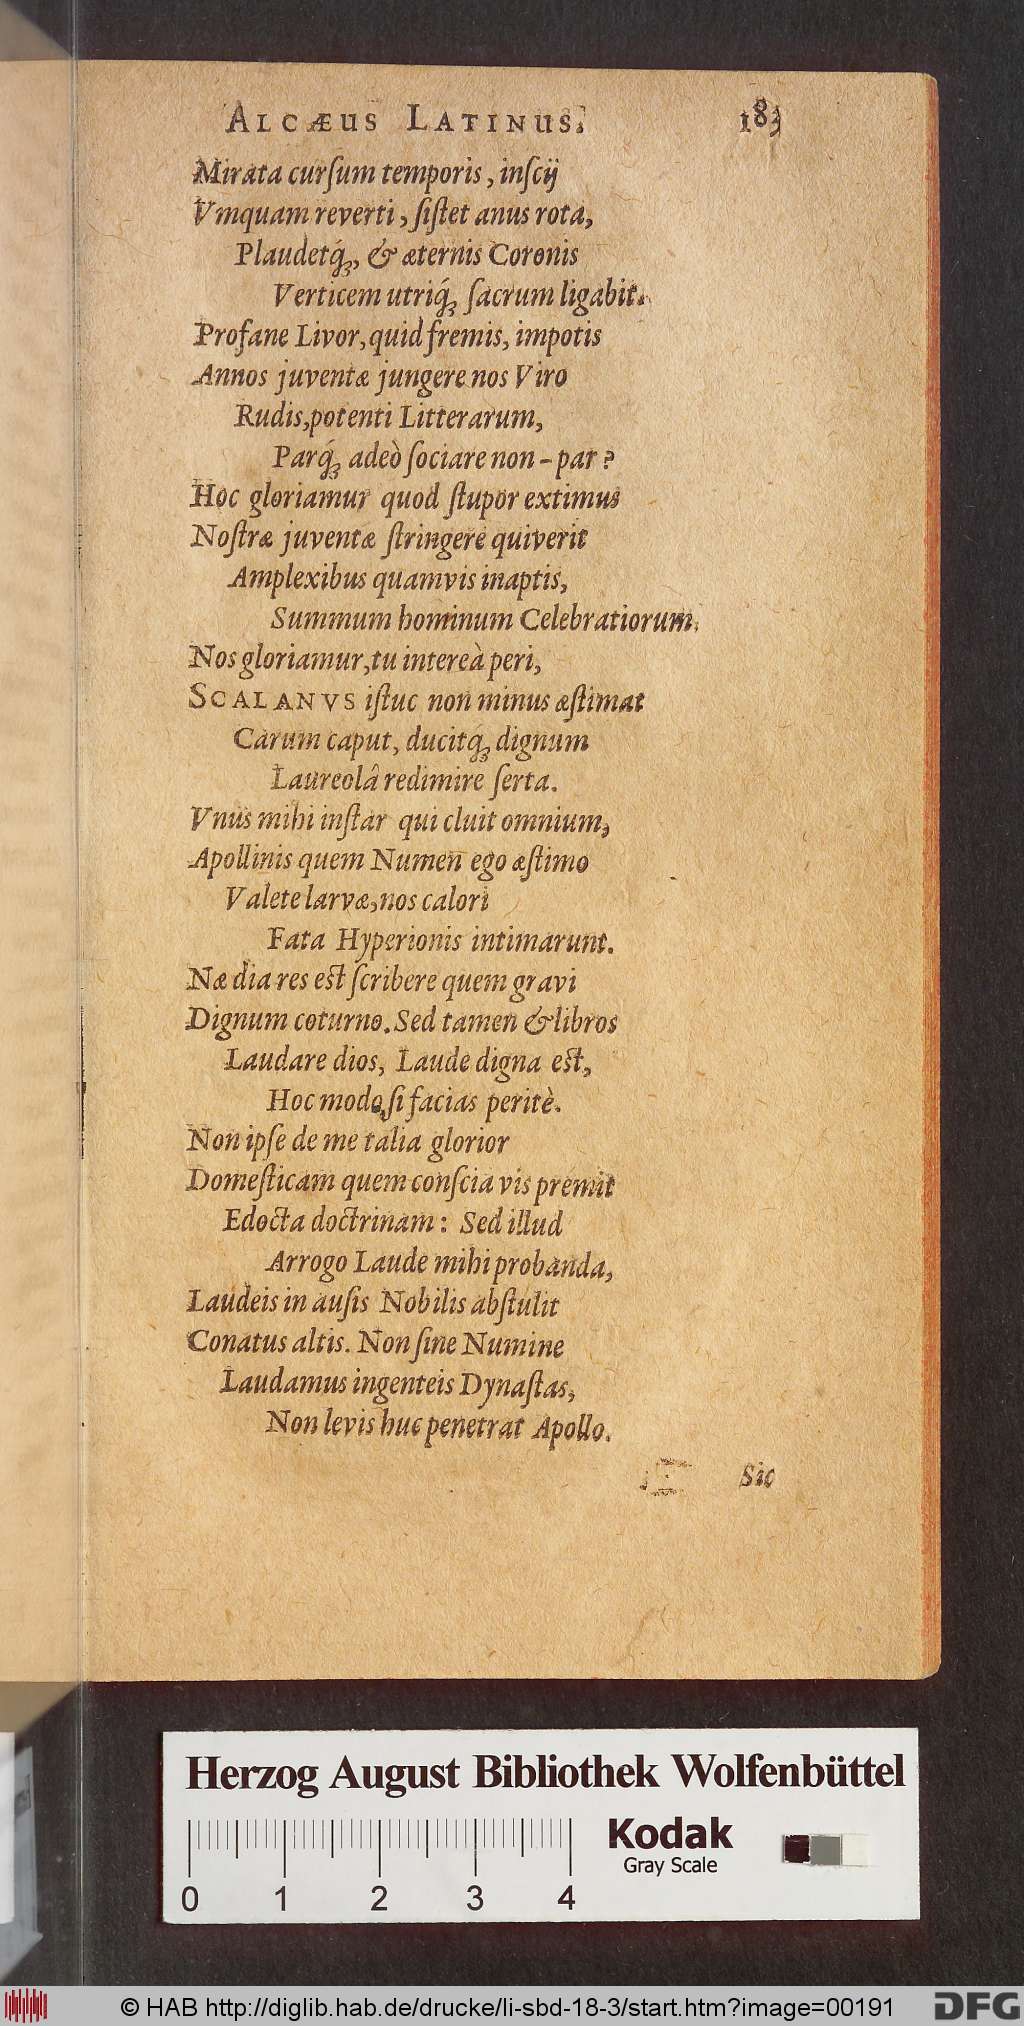 ALCÆUS LATINUS. 183
Mirata curſum temporis, inſcij
Vnquam reverti, ſiſtet anus rota,
Plaudetq́;, & æternis Coronis
Verticem utriq́; ſacrum ligabit.
Profane Livor, quid fremis, impotis
Annos juventæ jungere nos Viro
Rudis, potenti Litterarum,
Parq́; adeò ſociare non-par?
Hoc gloriamur quod ſtupor extimus
Noſtræ juventæ ſtringere quiverit
Amplexibus quamvis inaptis,
Summum hominum Celebratiorum.
Nos gloriamur, tu intereà peri,
SCALANVS iſtuc non minus æſtimat
Carum caput, ducitq́; dignum
Laureolâ redimire ſerta.
Vnus mihi inſtar qui cluit omnium,
Apollinis quem Numen ego æſtimo
Valete larvæ, nos calori
Fata Hyperionis intimarunt.
Næ dia res est ſcribere quem gravi
Dignum coturno. Sed tamen & libros
Laudare dios, Laude digna est,
Hoc modo ſi facias peritè.
Non ipſe de me talia glorior
Domeſticam quem conſcia vis premit
Edocta doctrinam: Sed illud
Arrogo Laude mihi probanda,
Laudeis in auſis Nobilis abſtulit
Conatus altis. Non ſine Numine
Laudamus ingenteis Dynaſtas,
Non levis huc penetrat Apollo.
Sic
Herzog August Bibliothek Wolfenbüttel
Kodak
Gray Scale
0 1 2 3 4
© HAB http://diglib.hab.de/drucke/li-sbd-18-3/start.htm?image=00191
DFG